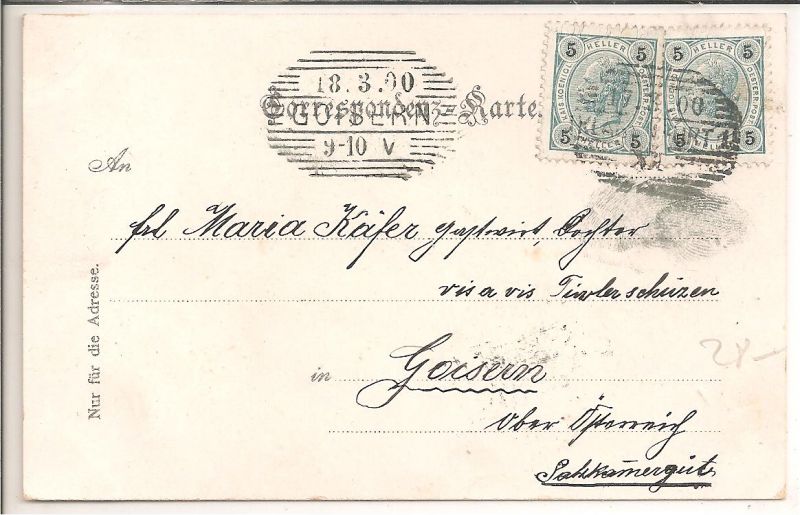 5 HELLER 5 5 HELLER 5
18.3.00
Correspondenz-Karte.
GOISERN
5 HELLER 5 5 5
9-10 V
An
Frl Maria Käfer Gastwirt, Tochter
vis a vis Tiroler schüzen
Nur für die Adresse.
in Goisern
Ober Österreich
Salzkammergut